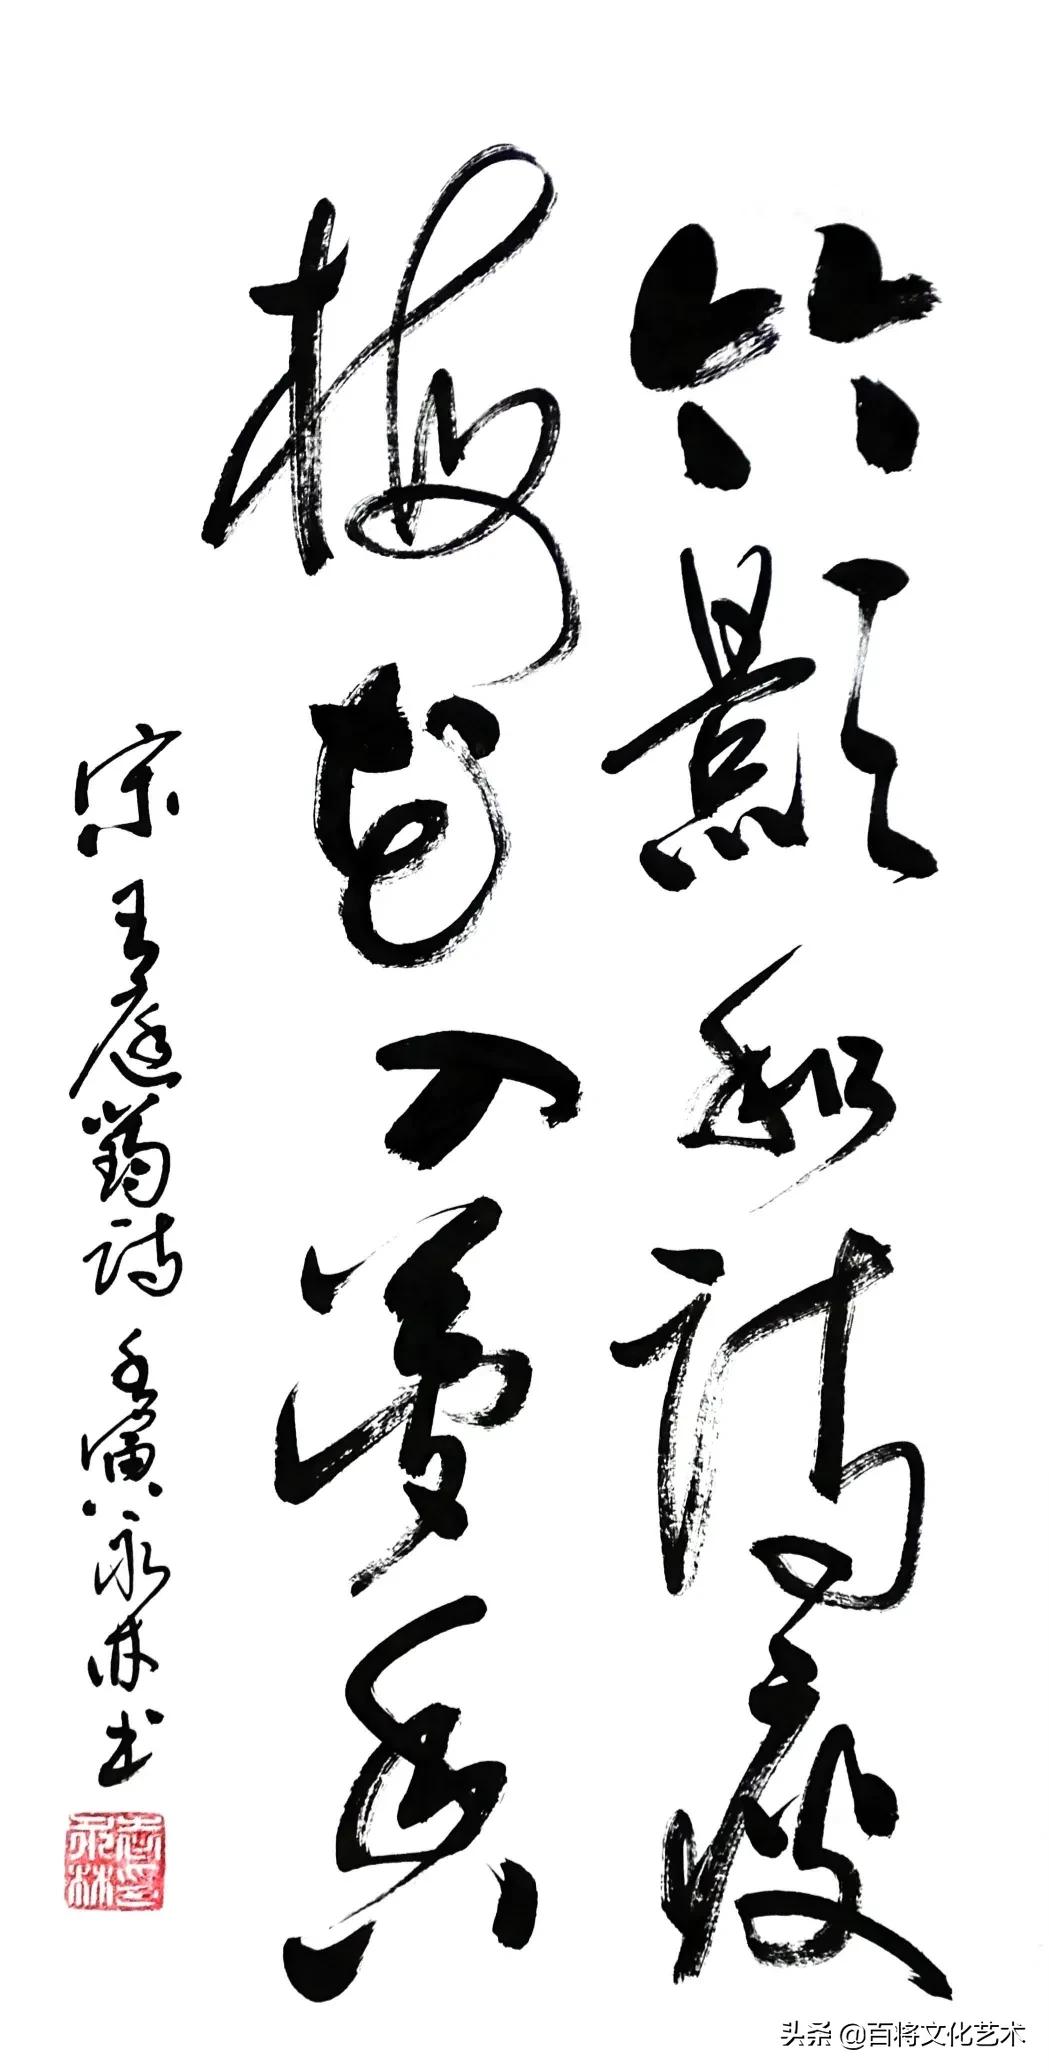 竹影和诗瘦
梅花入梦香
宋 王庭筠诗 壬寅 永林书
头条 @百将文化艺术